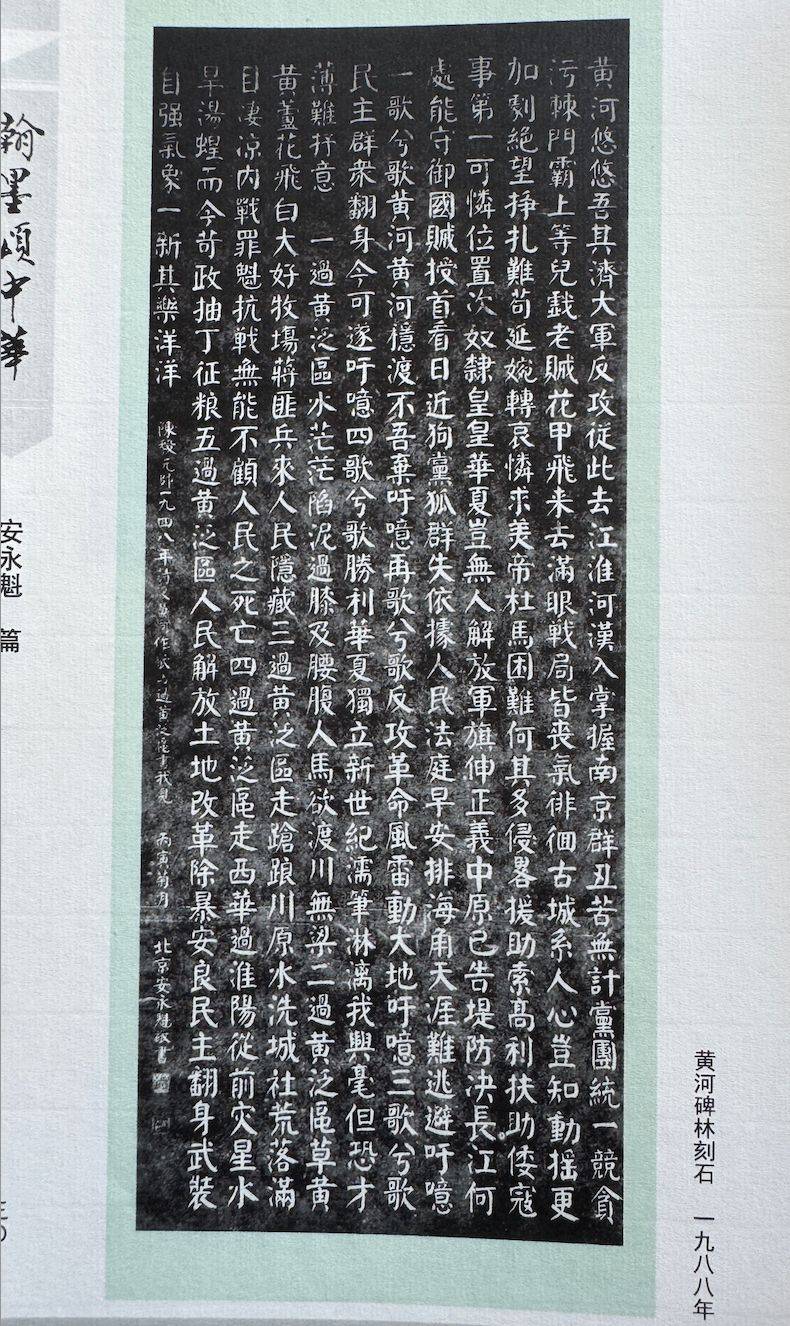 黃河悠悠吾其濟大軍反攻從此去江淮河漢入掌握南京群丑苦無計黨團統一競貪
污棘門霸上等兒戲老賊花甲飛来去滿眼戰局皆喪氣徘徊古城系人心豈知動摇更
加劇絕望掙扎難苟延婉轉哀憐求美帝杜馬困難何其多侵畧援助索高利扶助倭寇
事第一可憐位置次奴隸皇皇華夏豈無人解放軍旗伸正義中原已告堤防决長江何
處能守御國賊授首看日近狗黨狐群失依據人民法庭早安排海角天涯難逃避吁噫
一歌兮歌黃河黃河穩渡不吾棄吁噫再歌兮歌反攻革命風雷動大地吁噫三歌兮歌
民主群衆翻身今可逐吁噫四歌兮歌勝利華夏獨立新世紀濡筆淋漓我興毫但恐才
薄難抒意 一過黃泛區水茫茫陷泥過膝及腰腹人馬欲渡川無梁二過黃泛區草黃
黃蘆花飛白大好牧場蔣匪兵來人民隱藏三過黃泛區走蹌踉川原水洗城社荒落滿
目凄凉内戰罪魁抗戰無能不顧人民之死亡四過黃泛區走西華過淮陽從前灾星水
旱湯蝗而今苛政抽丁征粮五過黃泛區人民解放土地改革除暴安良民主翻身武裝
自强氣象一新其樂洋洋
陳毅元帥一九四八年 過黃泛區書我見 丙寅菊月 北京安永魁敬書
黄河碑林刻石 一九八八年
翰墨頌中華
安永魁 篇